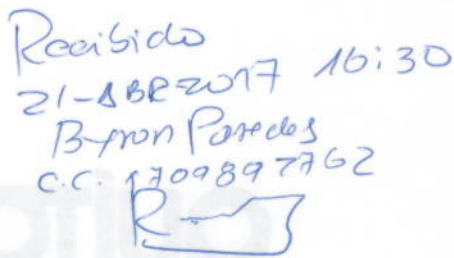 Recibido
21-ABR-2017 16:30
Byron Paredes
C.C. 1709897762